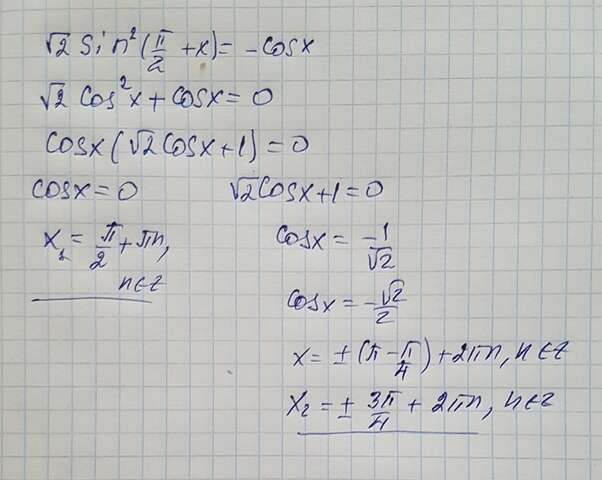 √2 Sin²(π/2 + x) = -cosx
√2 cos²x + cosx = 0
cosx(√2cosx+1) = 0
cosx = 0 √2cosx+1 = 0
x₁ = π/2 + πn, cosx = -1/√2
n∈Z cosx = -√2/2
x = ±(π - π/4) + 2πn, n∈Z
x₂ = ± 3π/4 + 2πn, n∈Z